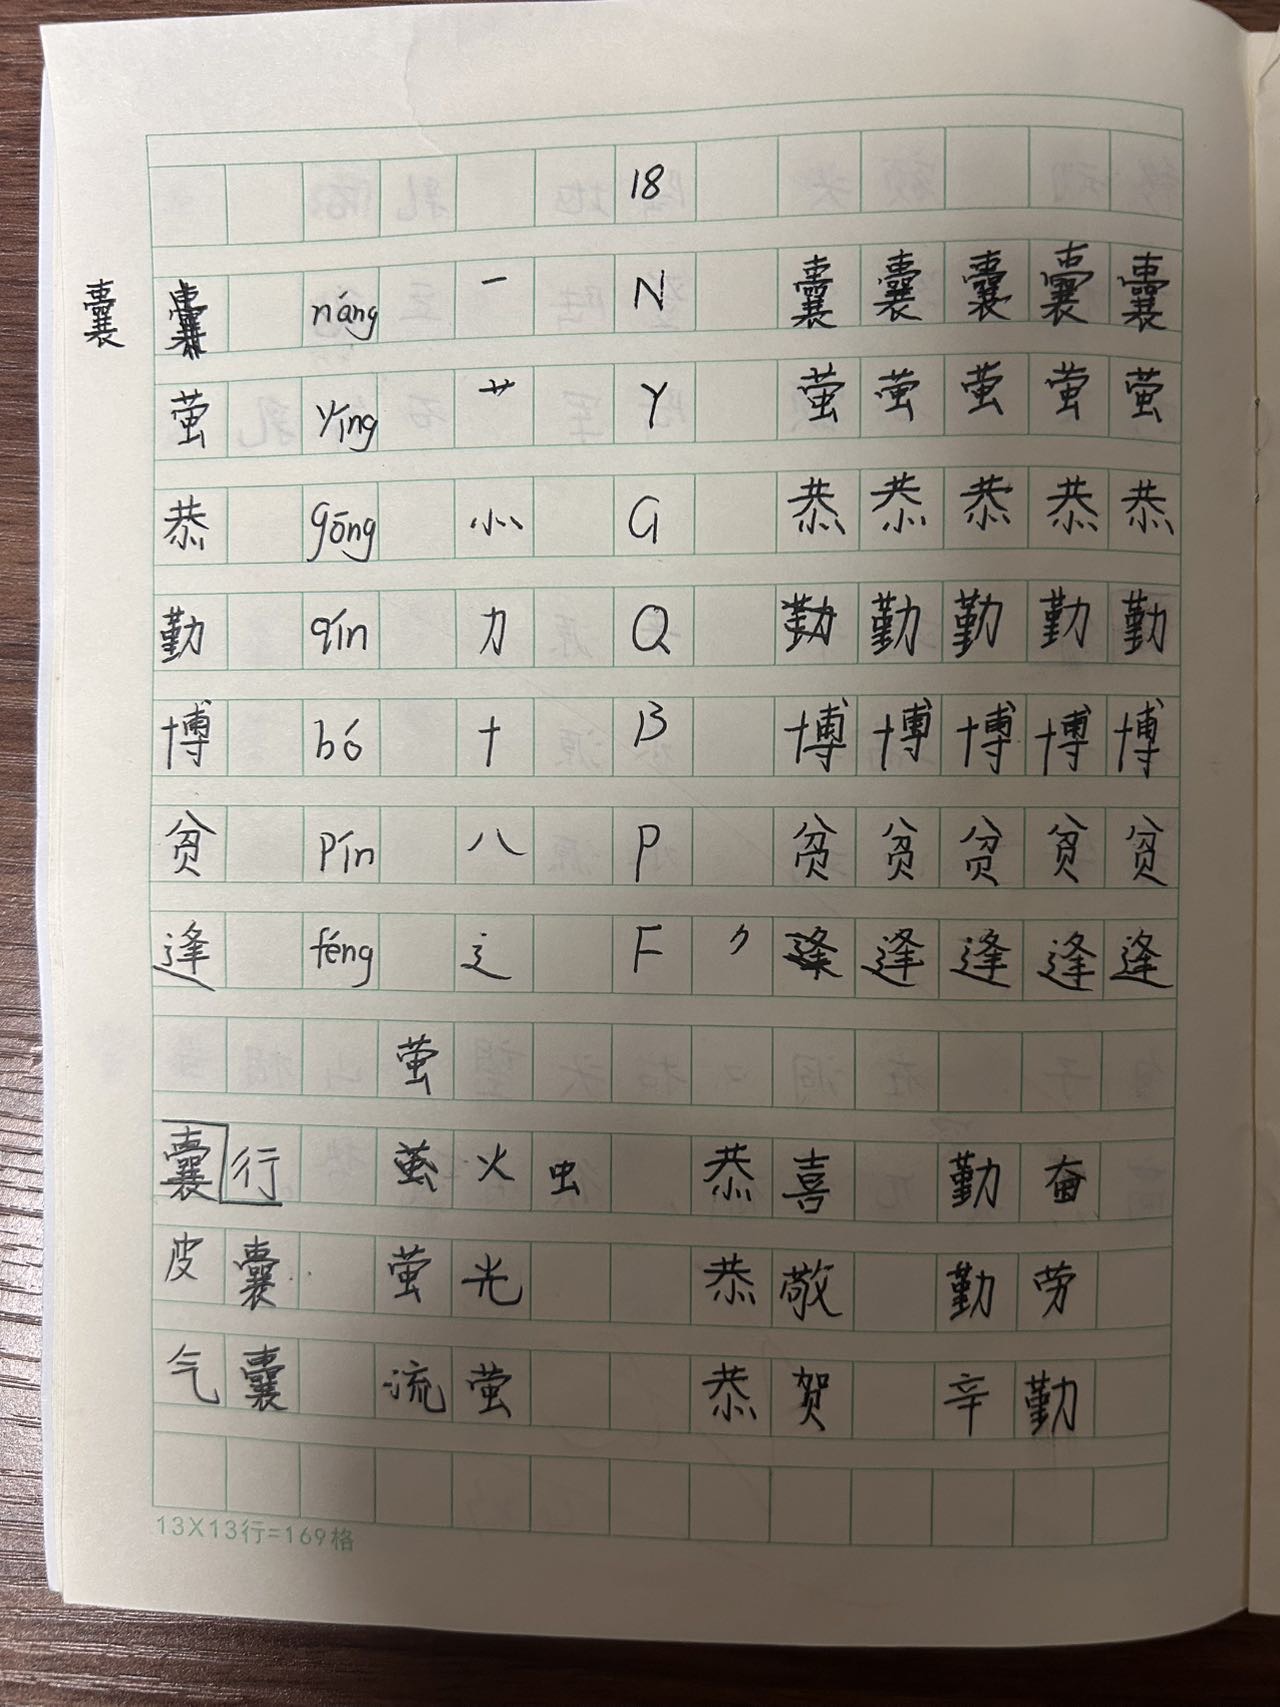 18
囊 囊 náng 一 N 囊 囊 囊 囊 囊
萤 yíng 艹 Y 萤 萤 萤 萤 萤
恭 gōng 㣺 G 恭 恭 恭 恭 恭
勤 qín 力 Q 勤 勤 勤 勤 勤
博 bó 十 B 博 博 博 博 博
贫 pín 八 P 贫 贫 贫 贫 贫
逢 féng 辶 F 逢 逢 逢 逢 逢
萤
囊行 萤火虫 恭喜 勤奋
皮囊 萤光 恭敬 勤劳
气囊 流萤 恭贺 辛勤
13X13行=169格